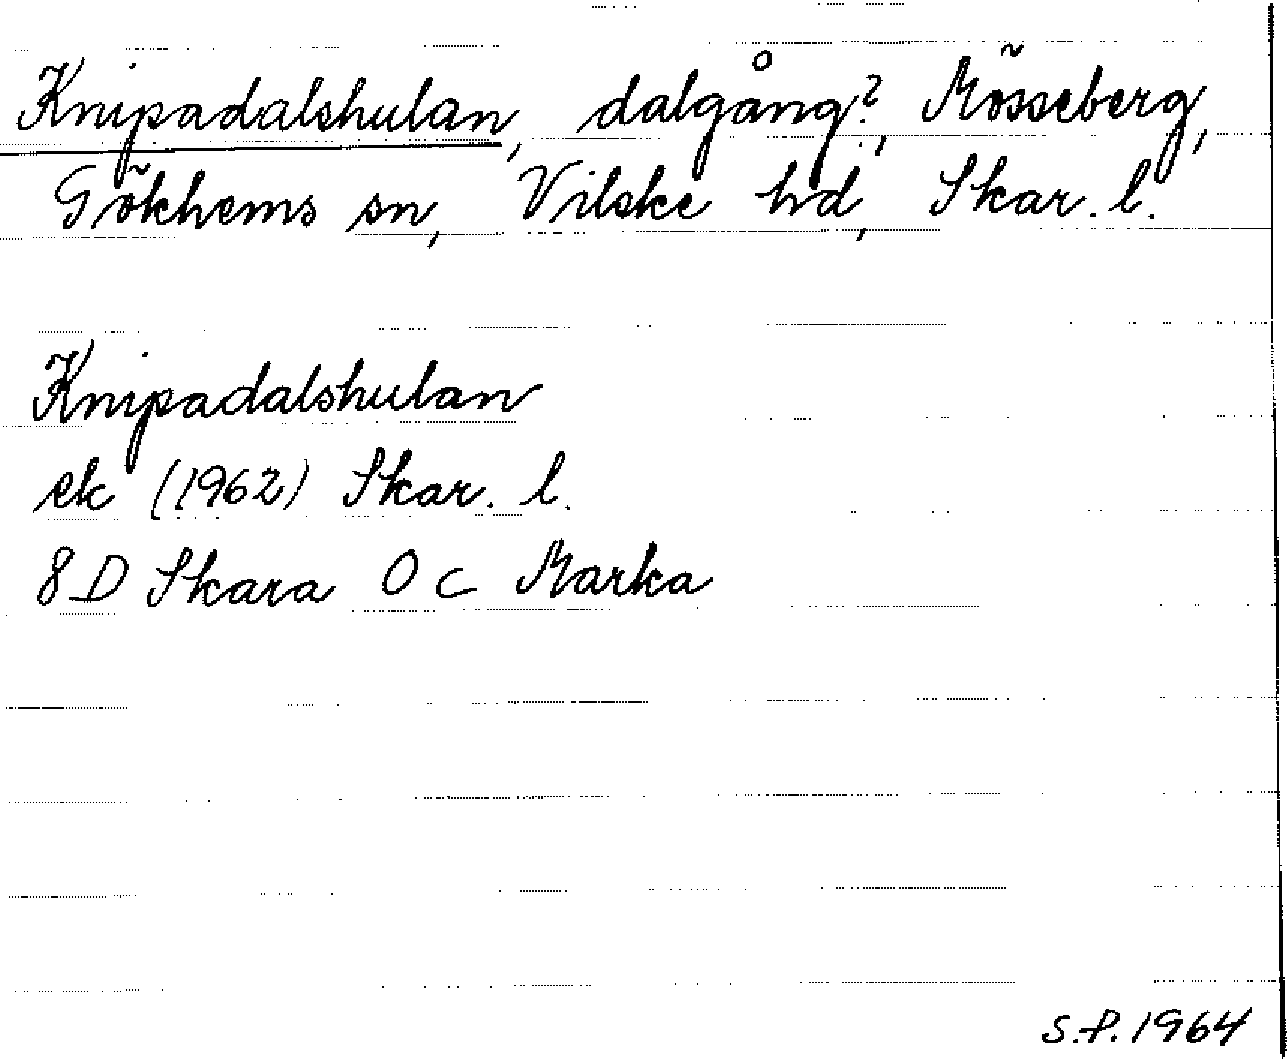 Knipadalshulan, dalgång?, Mösseberg,
Gökhems sn, Vilske hd, Skar. l.
Knipadalshulan
ek (1962) Skar. l.
8 D Skara 0 c Marka
S.P. 1964